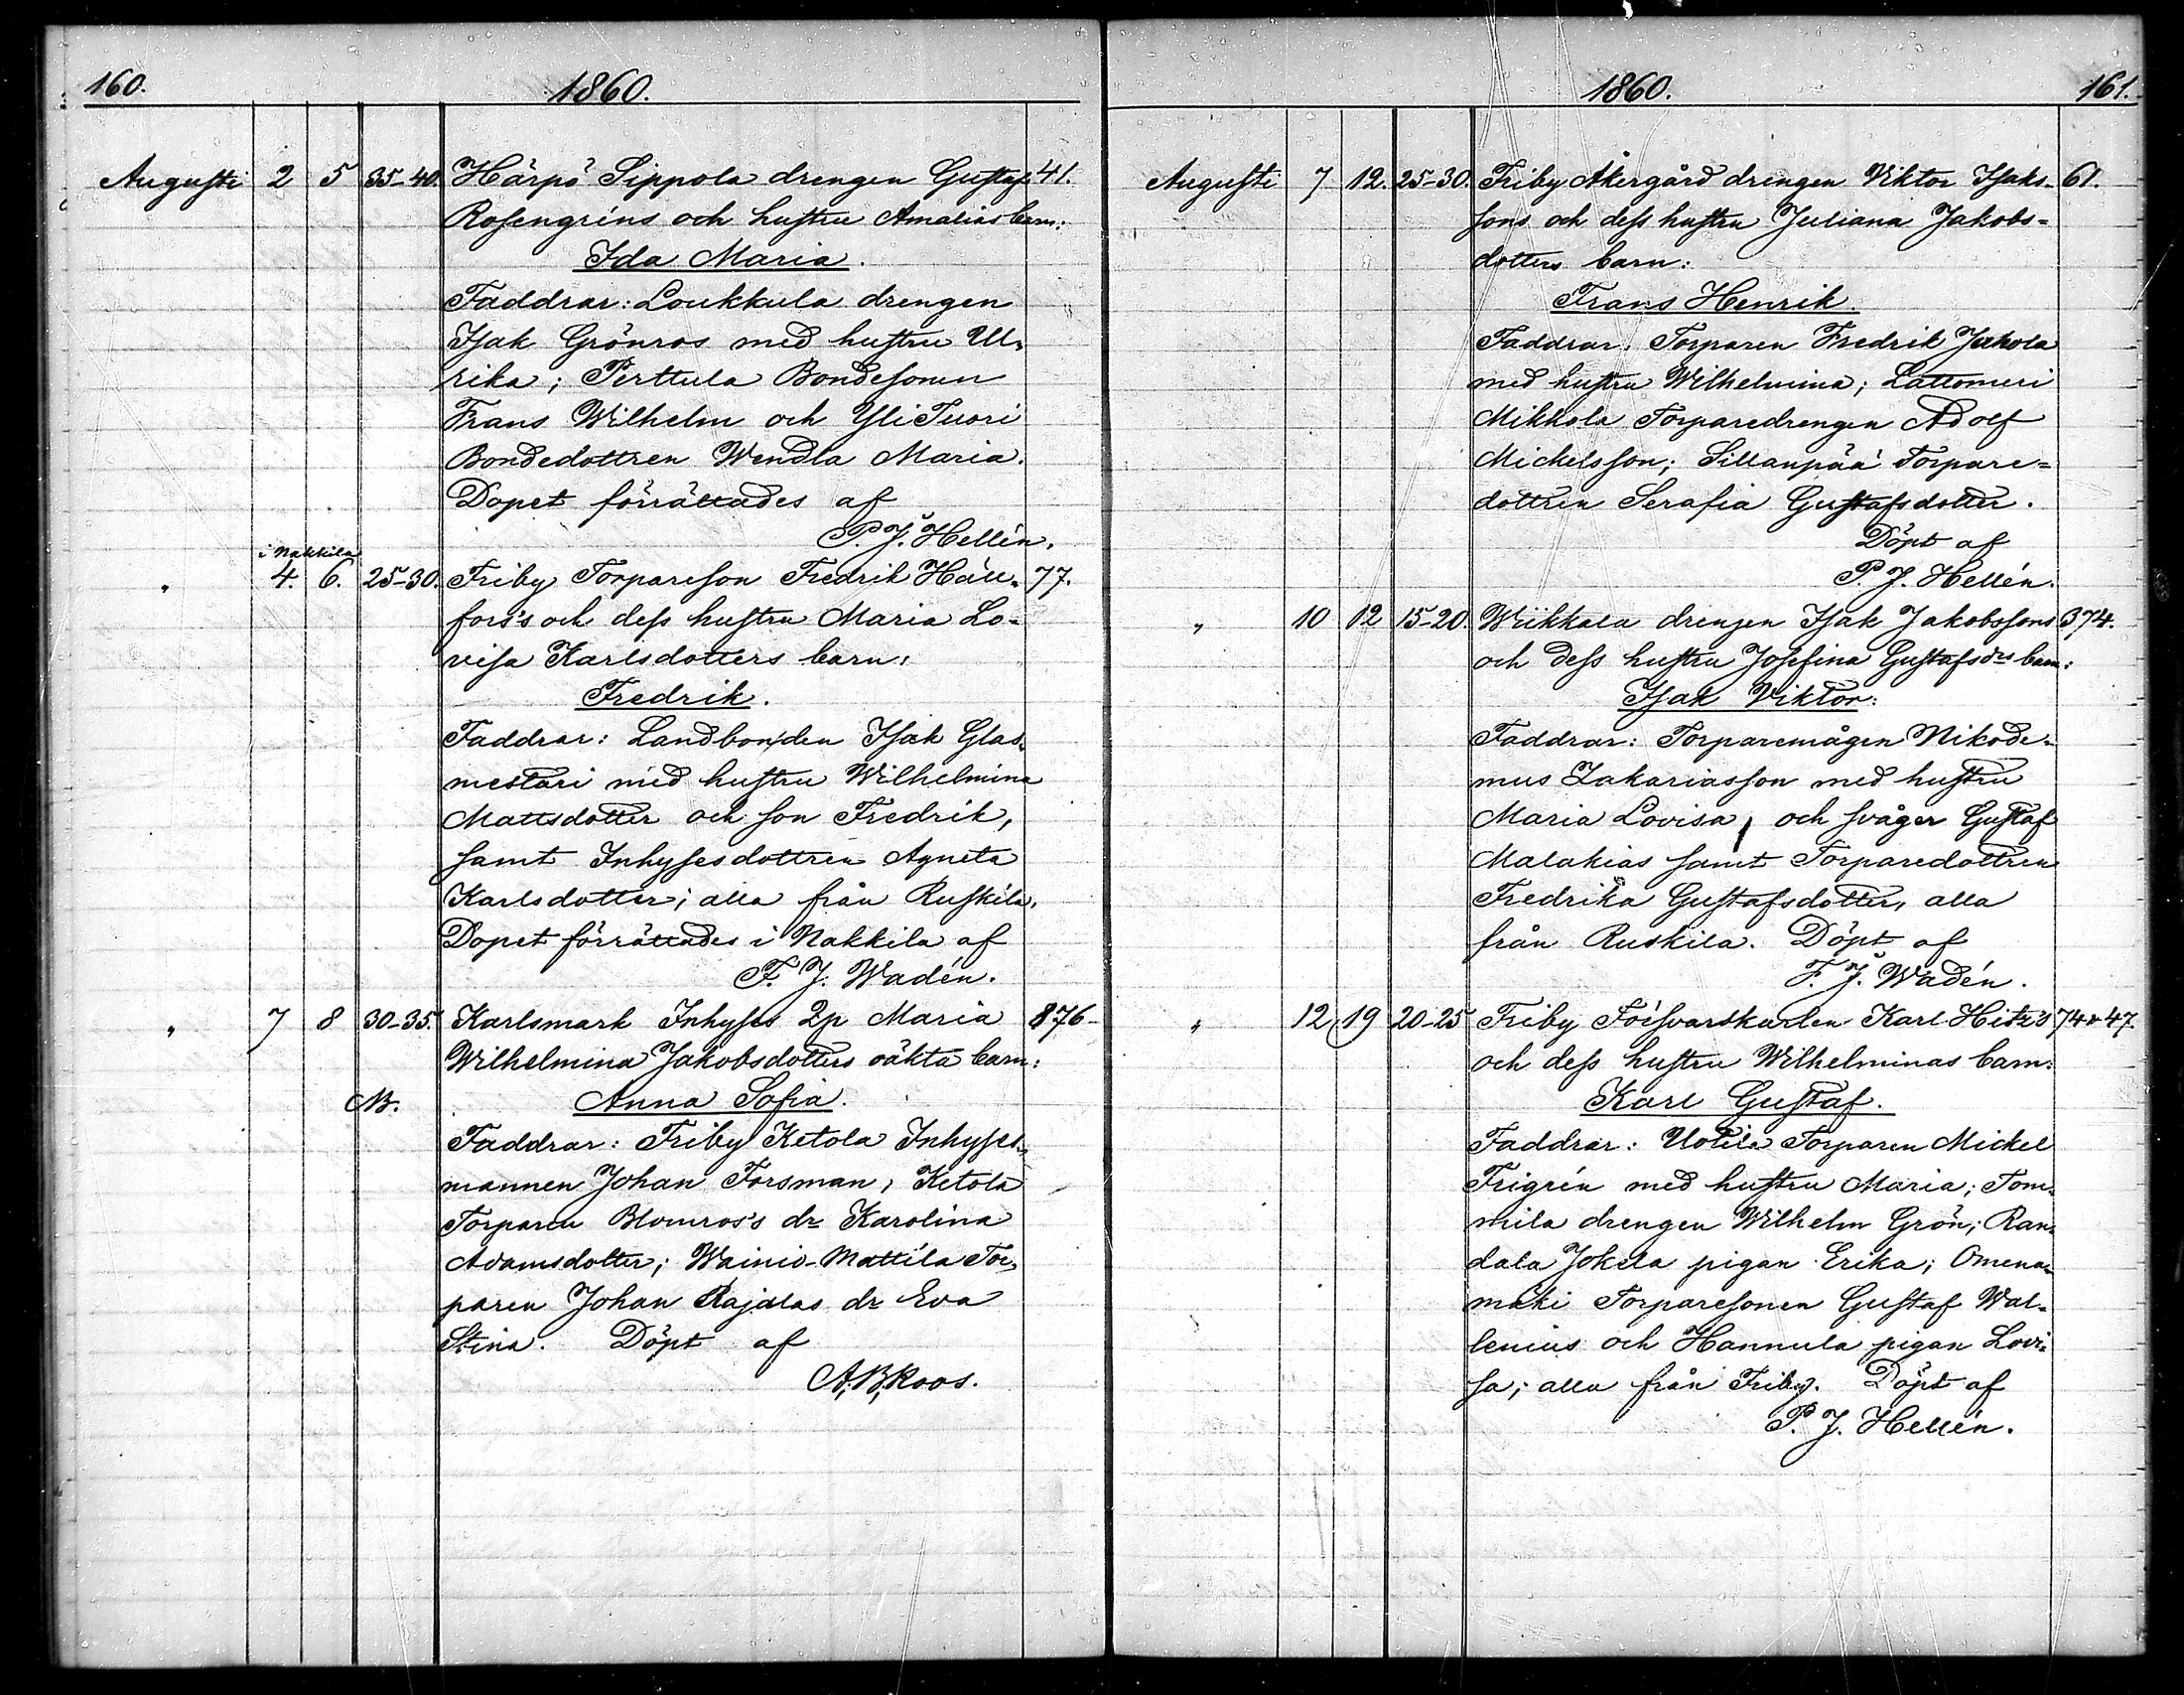 160.
1860.
Augusti 2 5 35-40. Härpö Sippola drengen Gustaf 41.
Rosengréns och hustru Amalias barn:
Ida Maria.
Faddrar: Loukkula drengen
Isak Grönros med hustru Ul-
rika; Perttula Bondesonen
Frans Wilhelm och Yli Tuori
Bondedottren Wendla Maria.
Dopet förrättades af
P. J. Hellén.
i Nakkila
" 4. 6. 25-30. Friby Torpareson Fredrik Häll- 77.
fors's och dess hustru Maria Lo-
visa Karlsdotters barn:
Fredrik.
Faddrar: Landbonden Isak Glas-
mestari med hustru Wilhelmina
Mattsdotter och son Fredrik,
samt Inhysesdottren Agneta
Karlsdotter; alla från Ruskila.
Dopet förrättades i Nakkila af
F. J. Wadén.
" 7 8 30-35. Karlsmark Inhyses Qp Maria 876-
Wilhelmina Jakobsdotters oäkta barn:
NB. Anna Sofia.
Faddrar: Friby Ketola Inhyses-
mannen Johan Forsman, Ketola
Torparen Blomros's dr Karolina
Adamsdotter; Wainio-Mattila Tor-
paren Johan Rajalas dr Eva
Stina. Döpt af
A. B. Roos.
1860.
161.
Augusti 7 12. 25-30. Friby Åkergård drengen Viktor Isaks- 61.
sons och dess hustru Juliana Jakobs-
dotters barn:
Frans Henrik.
Faddrar: Torparen Fredrik Jakola
med hustru Wilhelmina; Lattomeri
Mikkola Torparedrengen Adolf
Michelsson; Sillanpää Torpare-
dottren Serafia Gustafsdotter.
Döpt af
P. J. Hellén.
" 10 12 15-20. Wiikkala drengen Isak Jakobssons 374.
och dess hustru Josefina Gustafsdrs barn:
Isak Viktor:
Faddrar: Torparemågen Nikode-
mus Zakariasson med hustru
Maria Lovisa, och svåger Gustaf
Malakias samt Torparedottren
Fredrika Gustafsdotter, alla
från Ruskila. Döpt af
F. J. Wadén.
" 12 19 20-25 Friby Försvarskarlen Karl Hitz's 74 & 47.
och dess hustru Wilhelminas barn:
Karl Gustaf.
Faddrar: Uotila Torparen Mickel
Frigrén med hustru Maria; Tom-
mila drengen Wilhelm Grön; Ran-
dala Jokela pigan Erika; Omena-
mäki Torparesonen Gustaf Wal-
lenius och Hannula pigan Lovi-
sa; alla från Friby. Döpt af
P. J. Hellén.